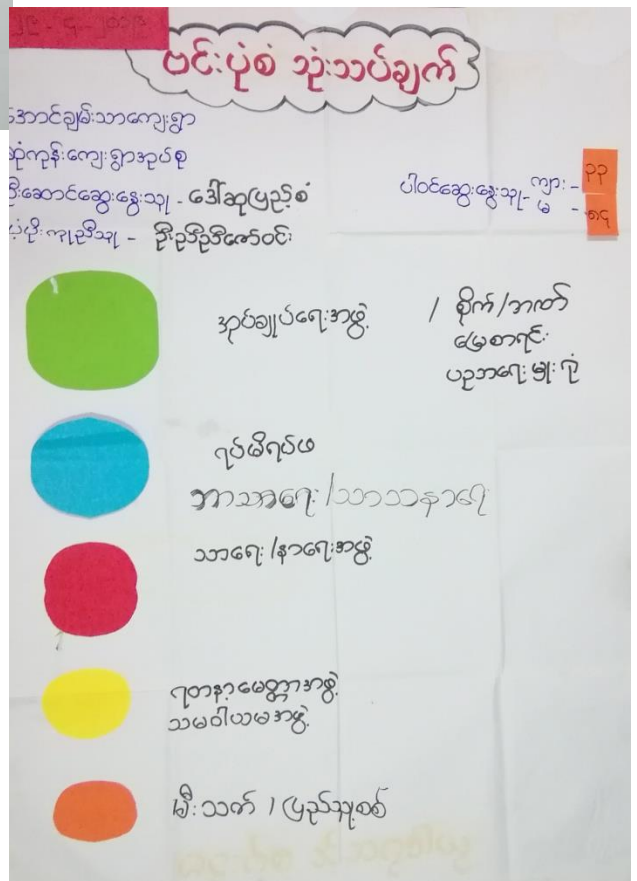 ၂၉ - ၄ - ၂၀၁၉
ဗင်းပုံစံ သုံးသပ်ချက်
အောင်ချမ်းသာကျေးရွာ
ဆုံကုန်းကျေးရွာအုပ်စု
ဦးဆောင်ဆွေးနွေးသူ - ဒေါ်ဆုပြည့်စံ
ပံ့ပိုးကူညီသူ - ဦးညီညီဇော်ဝင်း
ပါဝင်ဆွေးနွေးသူ - ကျား - ၃၃
မ - ၈၄
အုပ်ချုပ်ရေးအဖွဲ့ / စိုက်/ဘဏ်
မြေစာရင်း
ပညာရေးမှူးရုံး
ရပ်မိရပ်ဖ
ဘာသာရေး/သာသနာရေး
သာရေး/နာရေးအဖွဲ့
ရတနာ့မေတ္တာအဖွဲ့
သမဝါယမအဖွဲ့
မီးသတ် / ပြည်သူ့စစ်